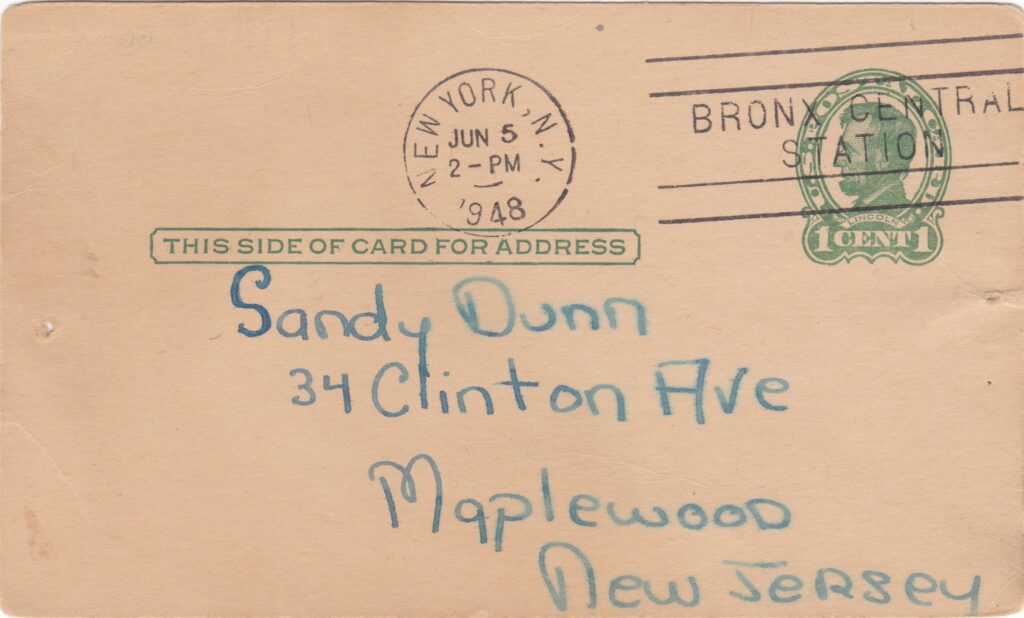 NEW YORK, N.Y.
JUN 5
2-PM
1948
BRONX CENTRAL
STATION
LINCOLN
1 CENT 1
THIS SIDE OF CARD FOR ADDRESS
Sandy Dunn
34 Clinton Ave
Maplewood
New Jersey